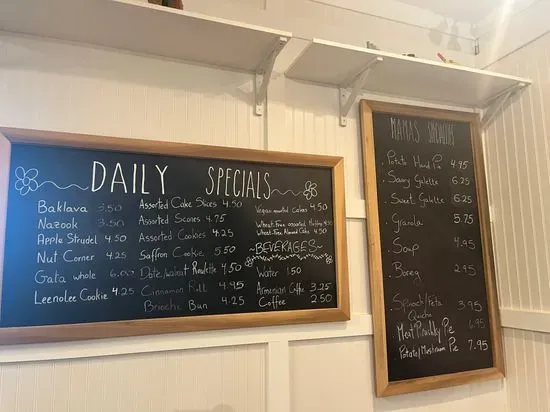 DAILY SPECIALS
Baklava 3.50
Nazook 3.50
Apple Strudel 4.50
Nut Corner 4.25
Gata whole 6.00
Leenolee Cookie 4.25
Assorted Cake Slices 4.50
Assorted Scones 4.75
Assorted Cookies 4.25
Saffron Cookie 5.50
Date/walnut Roulette 4.50
Cinnamon Roll 4.95
Brioche Bun 4.25
Vegan assorted Cakes 4.50
Wheat-Free assorted
Wheat-Free Almond Cake 4.50
BEVERAGES
Water 1.50
Armenian Coffee 3.25
Coffee 2.50
MAMAS SPECIALTIES
Potato Hand Pie 4.95
Savory Galette 6.25
Sweet Galette 6.25
Granola 5.75
Soup 4.50
Boreg 2.95
Spinach/Feta 3.95
Quiche
Meat Piroshky Pie 6.95
Potato/Mushroom Pie 7.95